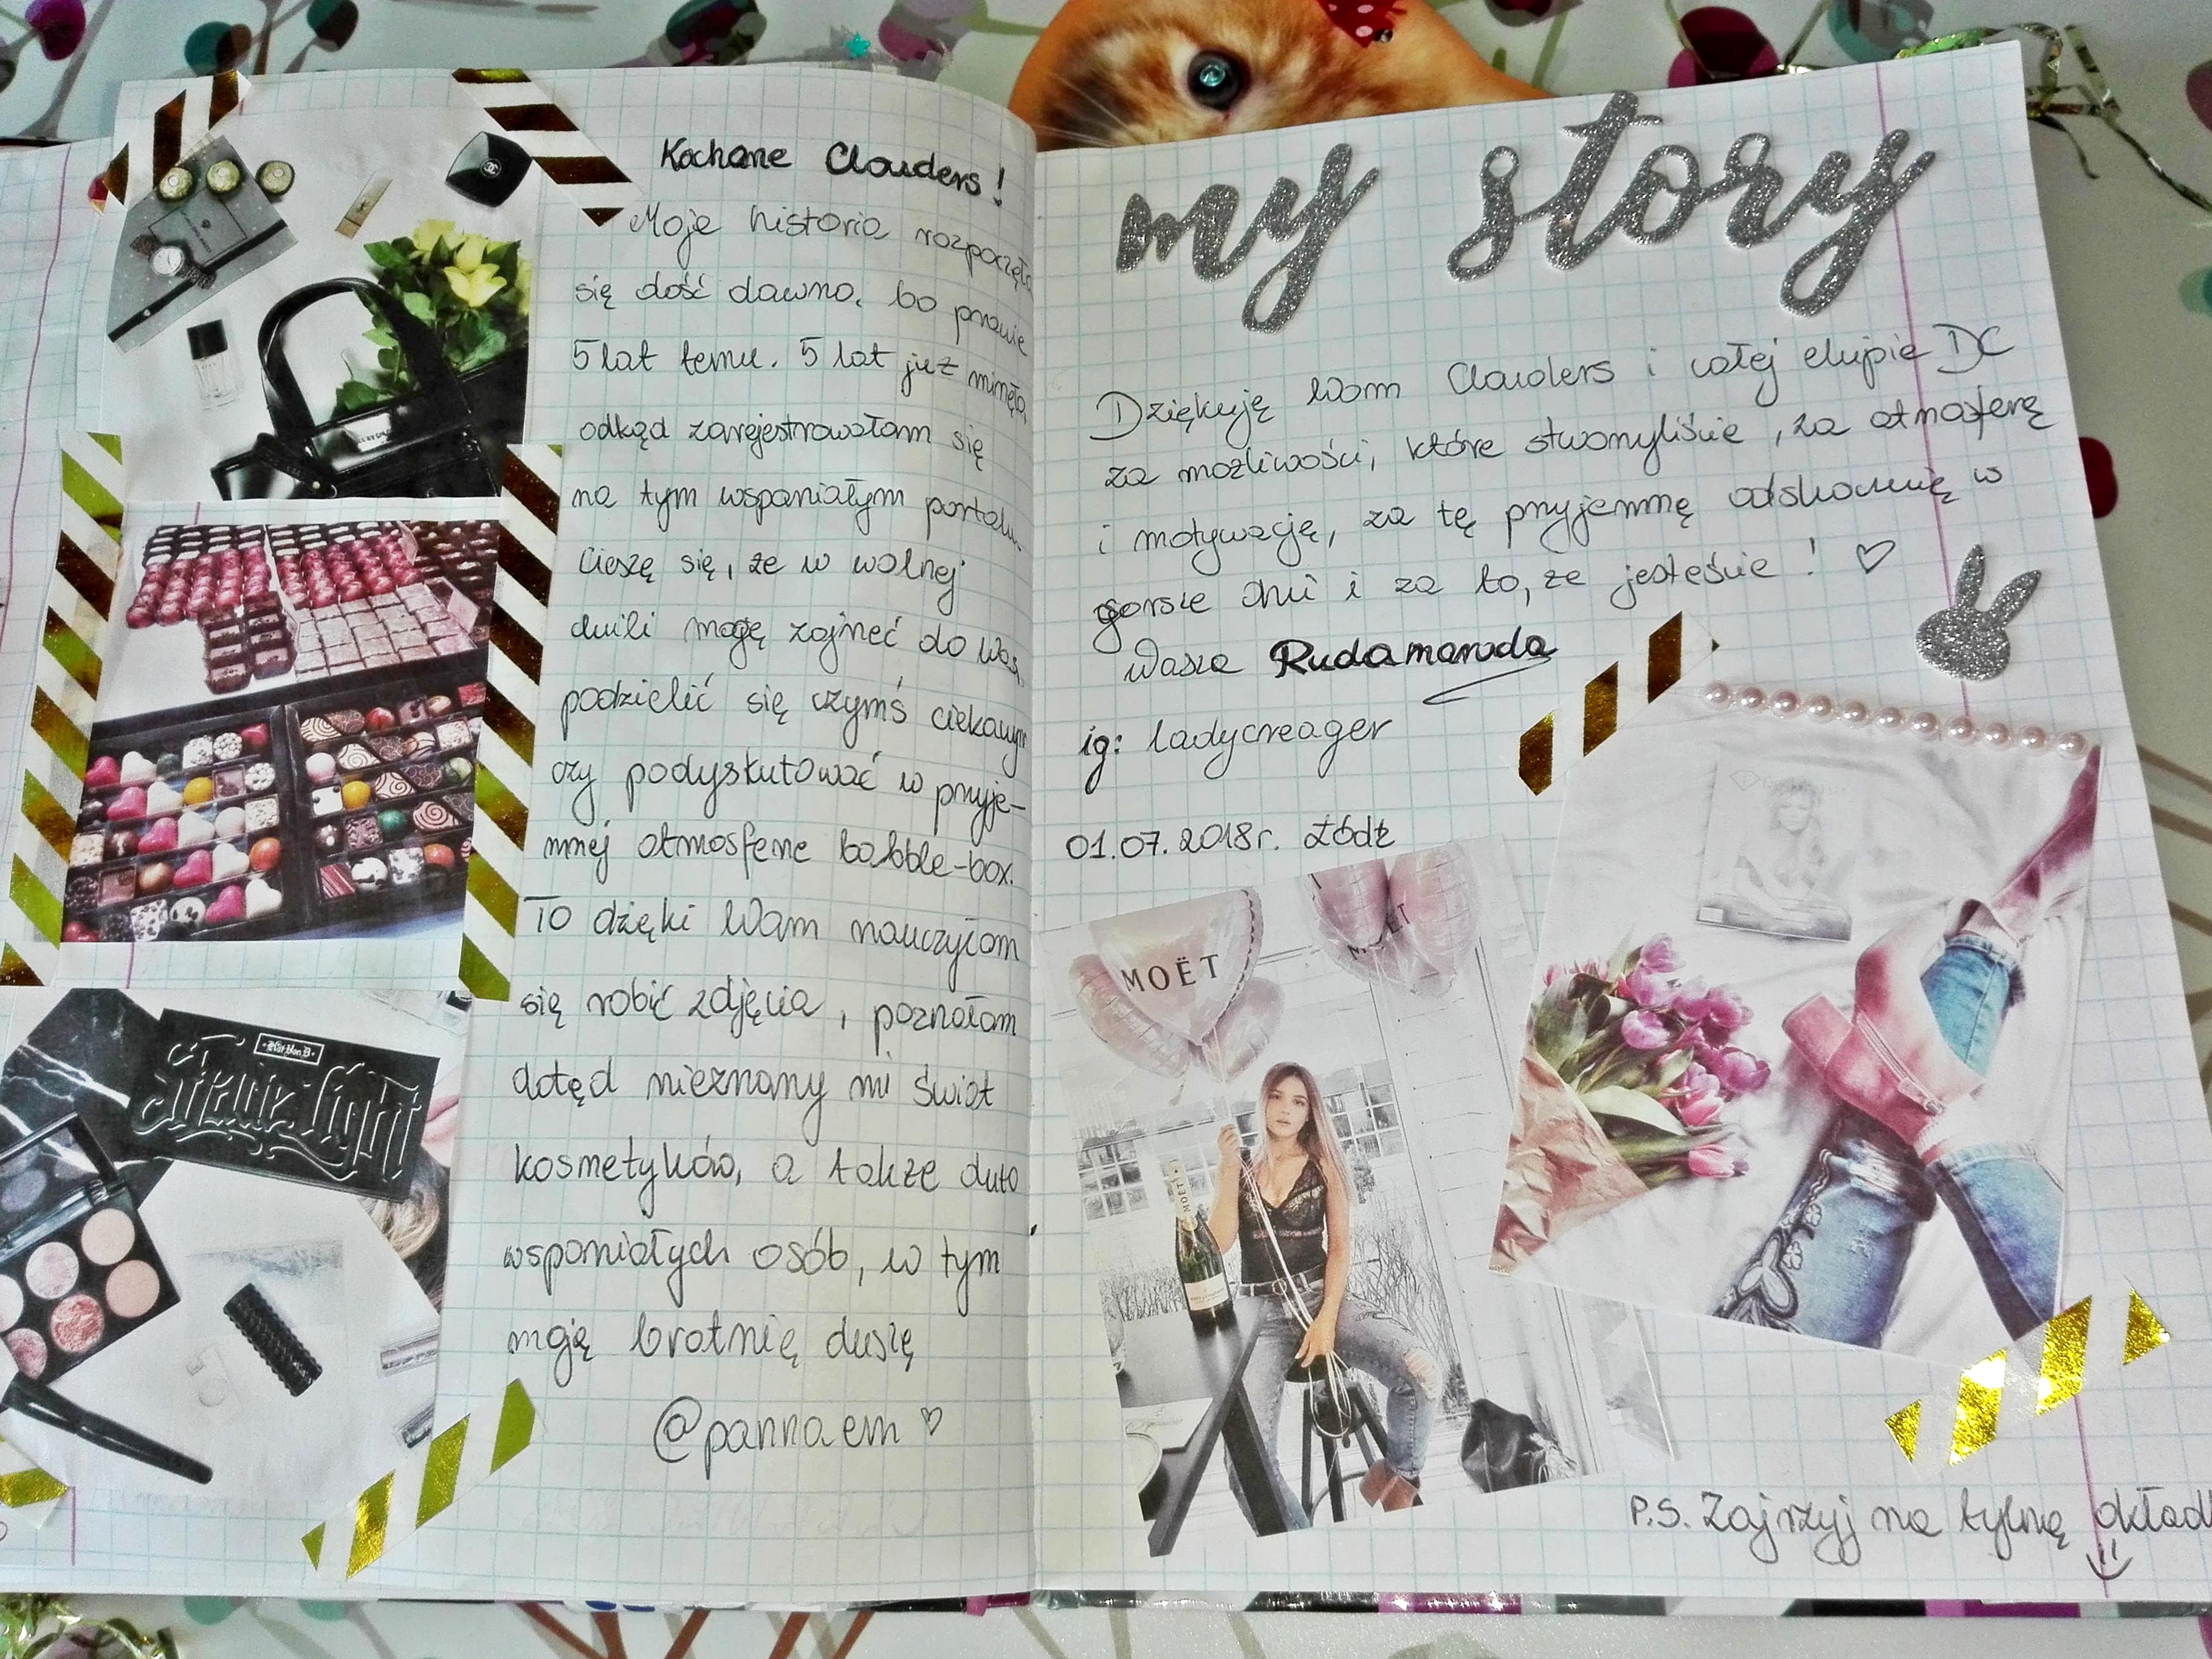 Kochane Clouders!
Moje historia rozpoczęła
się dość dawno, bo prawie
5 lat temu. 5 lat już minęło,
odkąd zarejestrowałam się
na tym wspaniałym portalu.
Cieszę się, że w wolnej
chwili mogę zajrzeć do Was,
podzielić się czymś ciekawym
czy podyskutować w przyje-
mnej atmosferze babble-box.
To dzięki Wam nauczyłam
się robić zdjęcia, poznałam
dotąd nieznany mi świat
kosmetyków, a także dużo
wspaniałych osób, w tym
moją bratnią duszę
@pannaem ♡
my story
Dziękuję Wam Clouders i całej ekipie DC
za możliwości, które stworzyliście, za atmosferę
i motywację, za tę przyjemną odskocznię w
gorsze dni i za to, że jesteście! ♡
Wasza Rudamaruda
ig: ladycreager
01.07.2018r. Łódź
MOËT
MOËT
MOËT
Kat Von D
Shade+Light
P.S. Zajrzyj na tylną okład